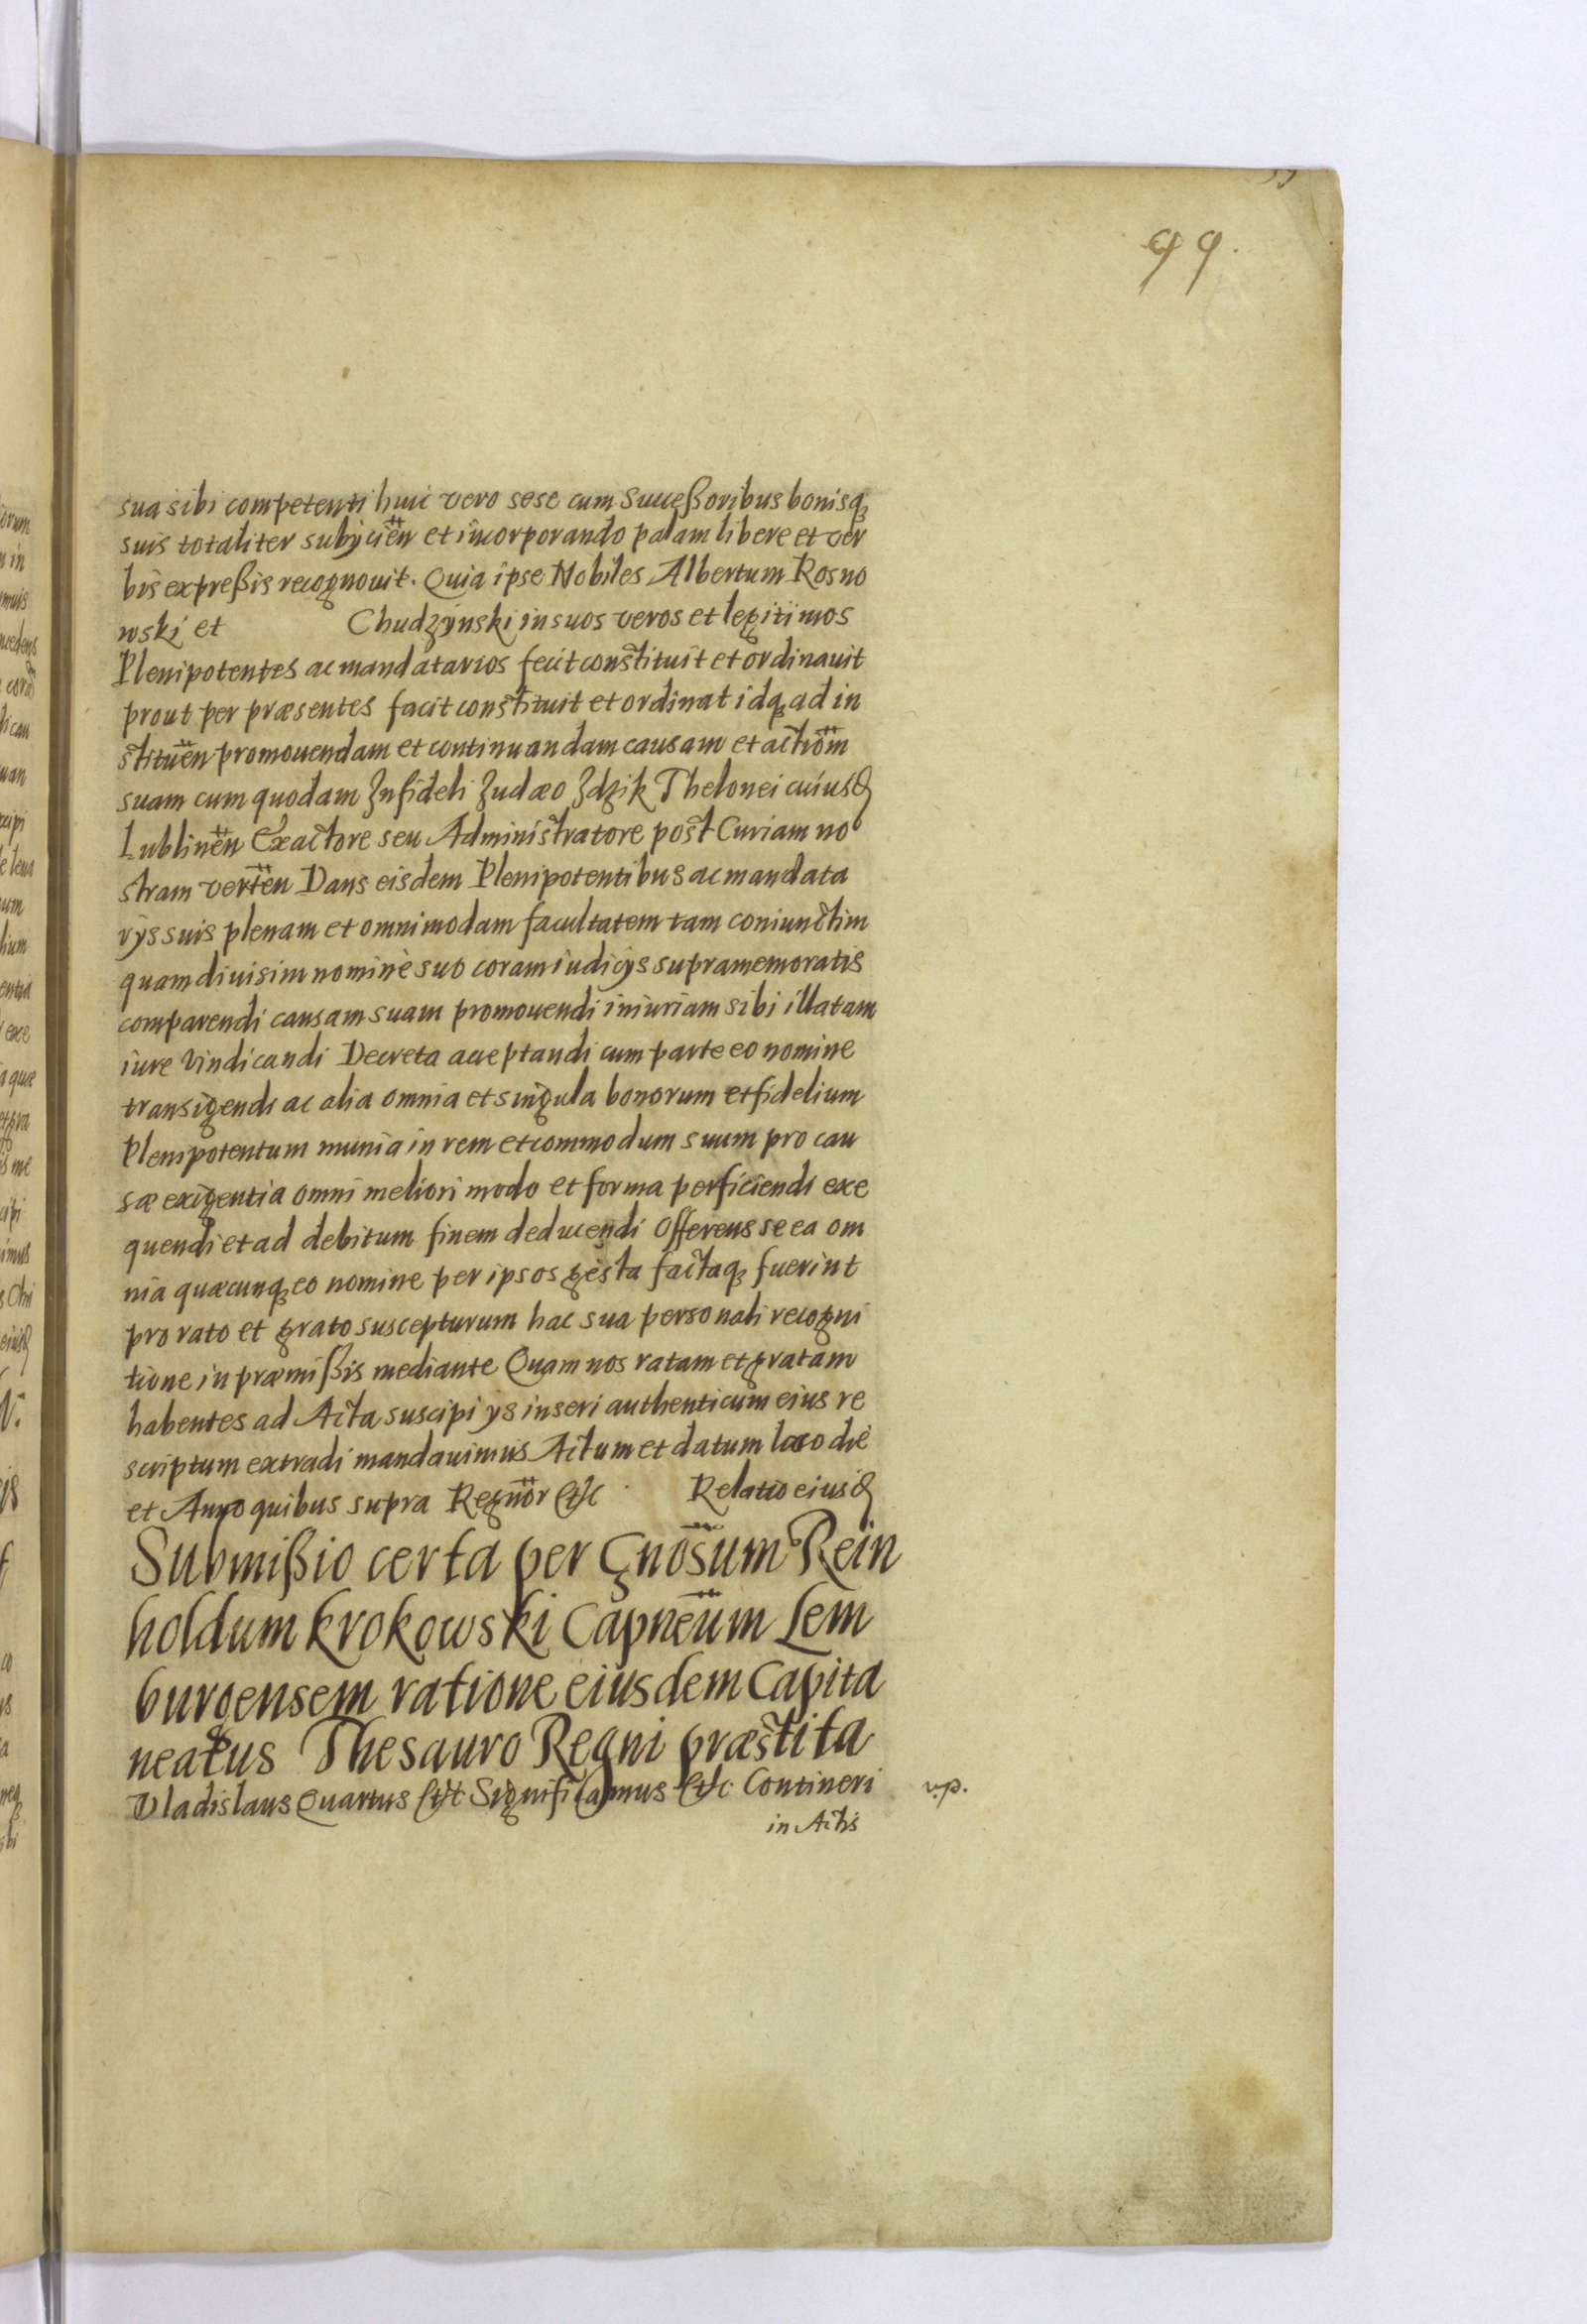 99.
sua sibi competenti huic vero sese cum Successoribus bonisq;
suis totaliter subÿcien̄ et incorporando palam libere et ver
bis expreßis recognouit. Quia ipse Nobiles Albertum Rosno
wski et Chudzÿnski in suos veros et legitimos
Plenipotentes ac mandatarios fecit constituit et ordinauit
prout per præsentes facit constituit et ordinat idq; ad in
stituen̄ promouendam et continuandam causam et actiōm
suam cum quodam Infideli Iudæo Idzik Thelonei cuiusd
Lublinen̄ Exactore seu Administratore post Curiam no
stram verten̄ Dans eisdem Plenipotentibus ac mandata
rÿs suis plenam et omnimodam facultatem tam coniunctim
quam diuisim nomine suo coram iudicÿs supramemoratis
comparendi causam suam promouendi iniuriam sibi illatam
iure vindicandi Decreta acceptandi cum parte eo nomine
transigendi ac alia omnia et singula bonorum et fidelium
Plenipotentum munia in rem et commodum suum pro cau
sæ exigentia omni meliori modo et forma perficiendi exe
quendi et ad debitum finem deducendi Offerens se ea om
nia quæcunq; eo nomine per ipsos gesta factaq; fuerint
pro rato et grato suscepturum hac sua personali recogni
tione in præmißis mediante Quam nos ratam et gratam
habentes ad Acta suscipi ÿs inseri authenticum eius re
scriptum extradi mandauimus Actum et datum loco die
et Anno quibus supra Regnōr etc Relatio eiusd
Submißio certa per Gnōsum Rein
holdum Krokowski Capnēum Lem
burgensem ratione eiusdem Capita
neatus Thesauro Regni præstita
Vladislaus Quartus etc Significamus etc Contineri v.p.
in Actis